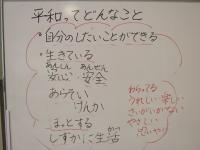 平和ってどんなこと
・自分のしたいことができる
・生きている
あんしん あんぜん
安心・安全
あらそい
けんか
まっとする
しずかに生活
かつ
わらってる
うれしい 楽しい
さいがいがない
やさしい